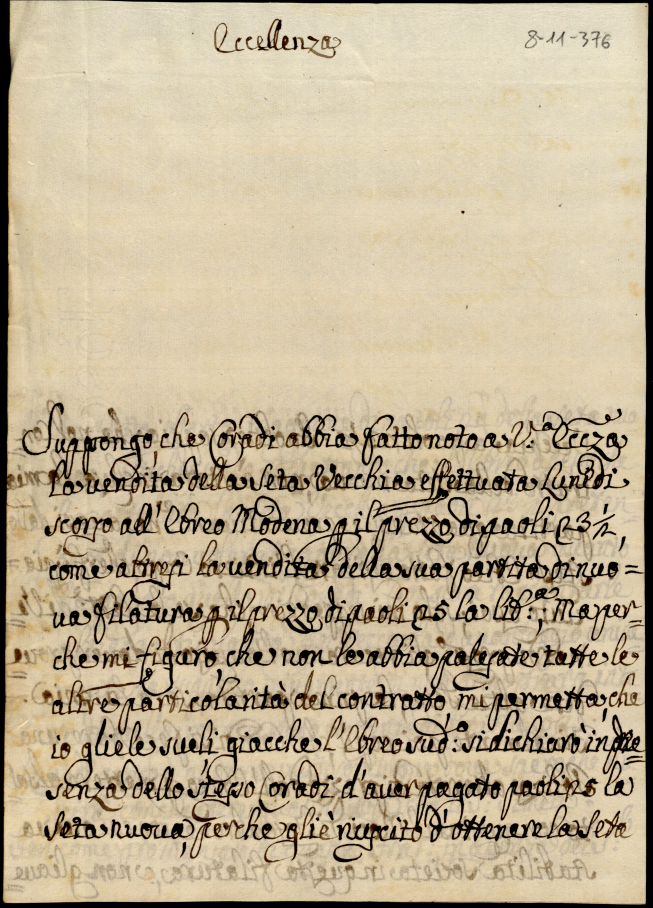 Eccellenza
8-11-376
Suppongo, che Coradi abbia fatto noto a V.ª Eccza
la vendita della seta vecchia effettuata Lunedi
scorso all'Ebreo Modena p il prezzo di paoli 23½,
come altresi la vendita della sua partita di nuo=
va filatura p il prezzo di paoli 25 la lib.ª; Ma per=
che mi figuro, che non le abbia palesate tutte le
altre particolarità del contratto, mi permetta, che
io gliele sveli giacche l'Ebreo sud.º si dichiarò in pre=
senza dello stesso Coradi d'aver pagato paoli 25 la
seta nuova, perche gli è riuscito d'ottenere la seta